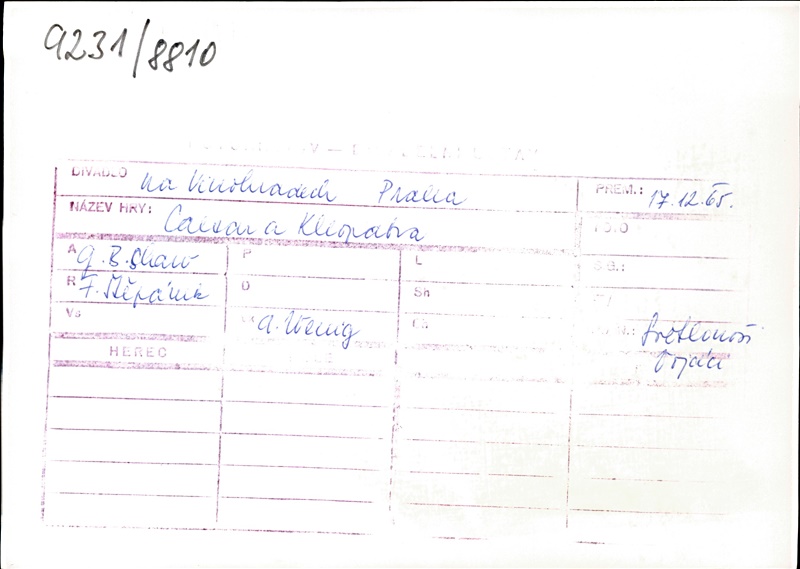 9231/8810
DIVADLO na Vinohradech Praha PREM.: 17.12.65.
NÁZEV HRY: Caesar a Kleopatra
A G. B. Shaw P L
R F. Štěpánek D Sh
Vs A. Wenig Ch Světlonoši
HEREC vojáci